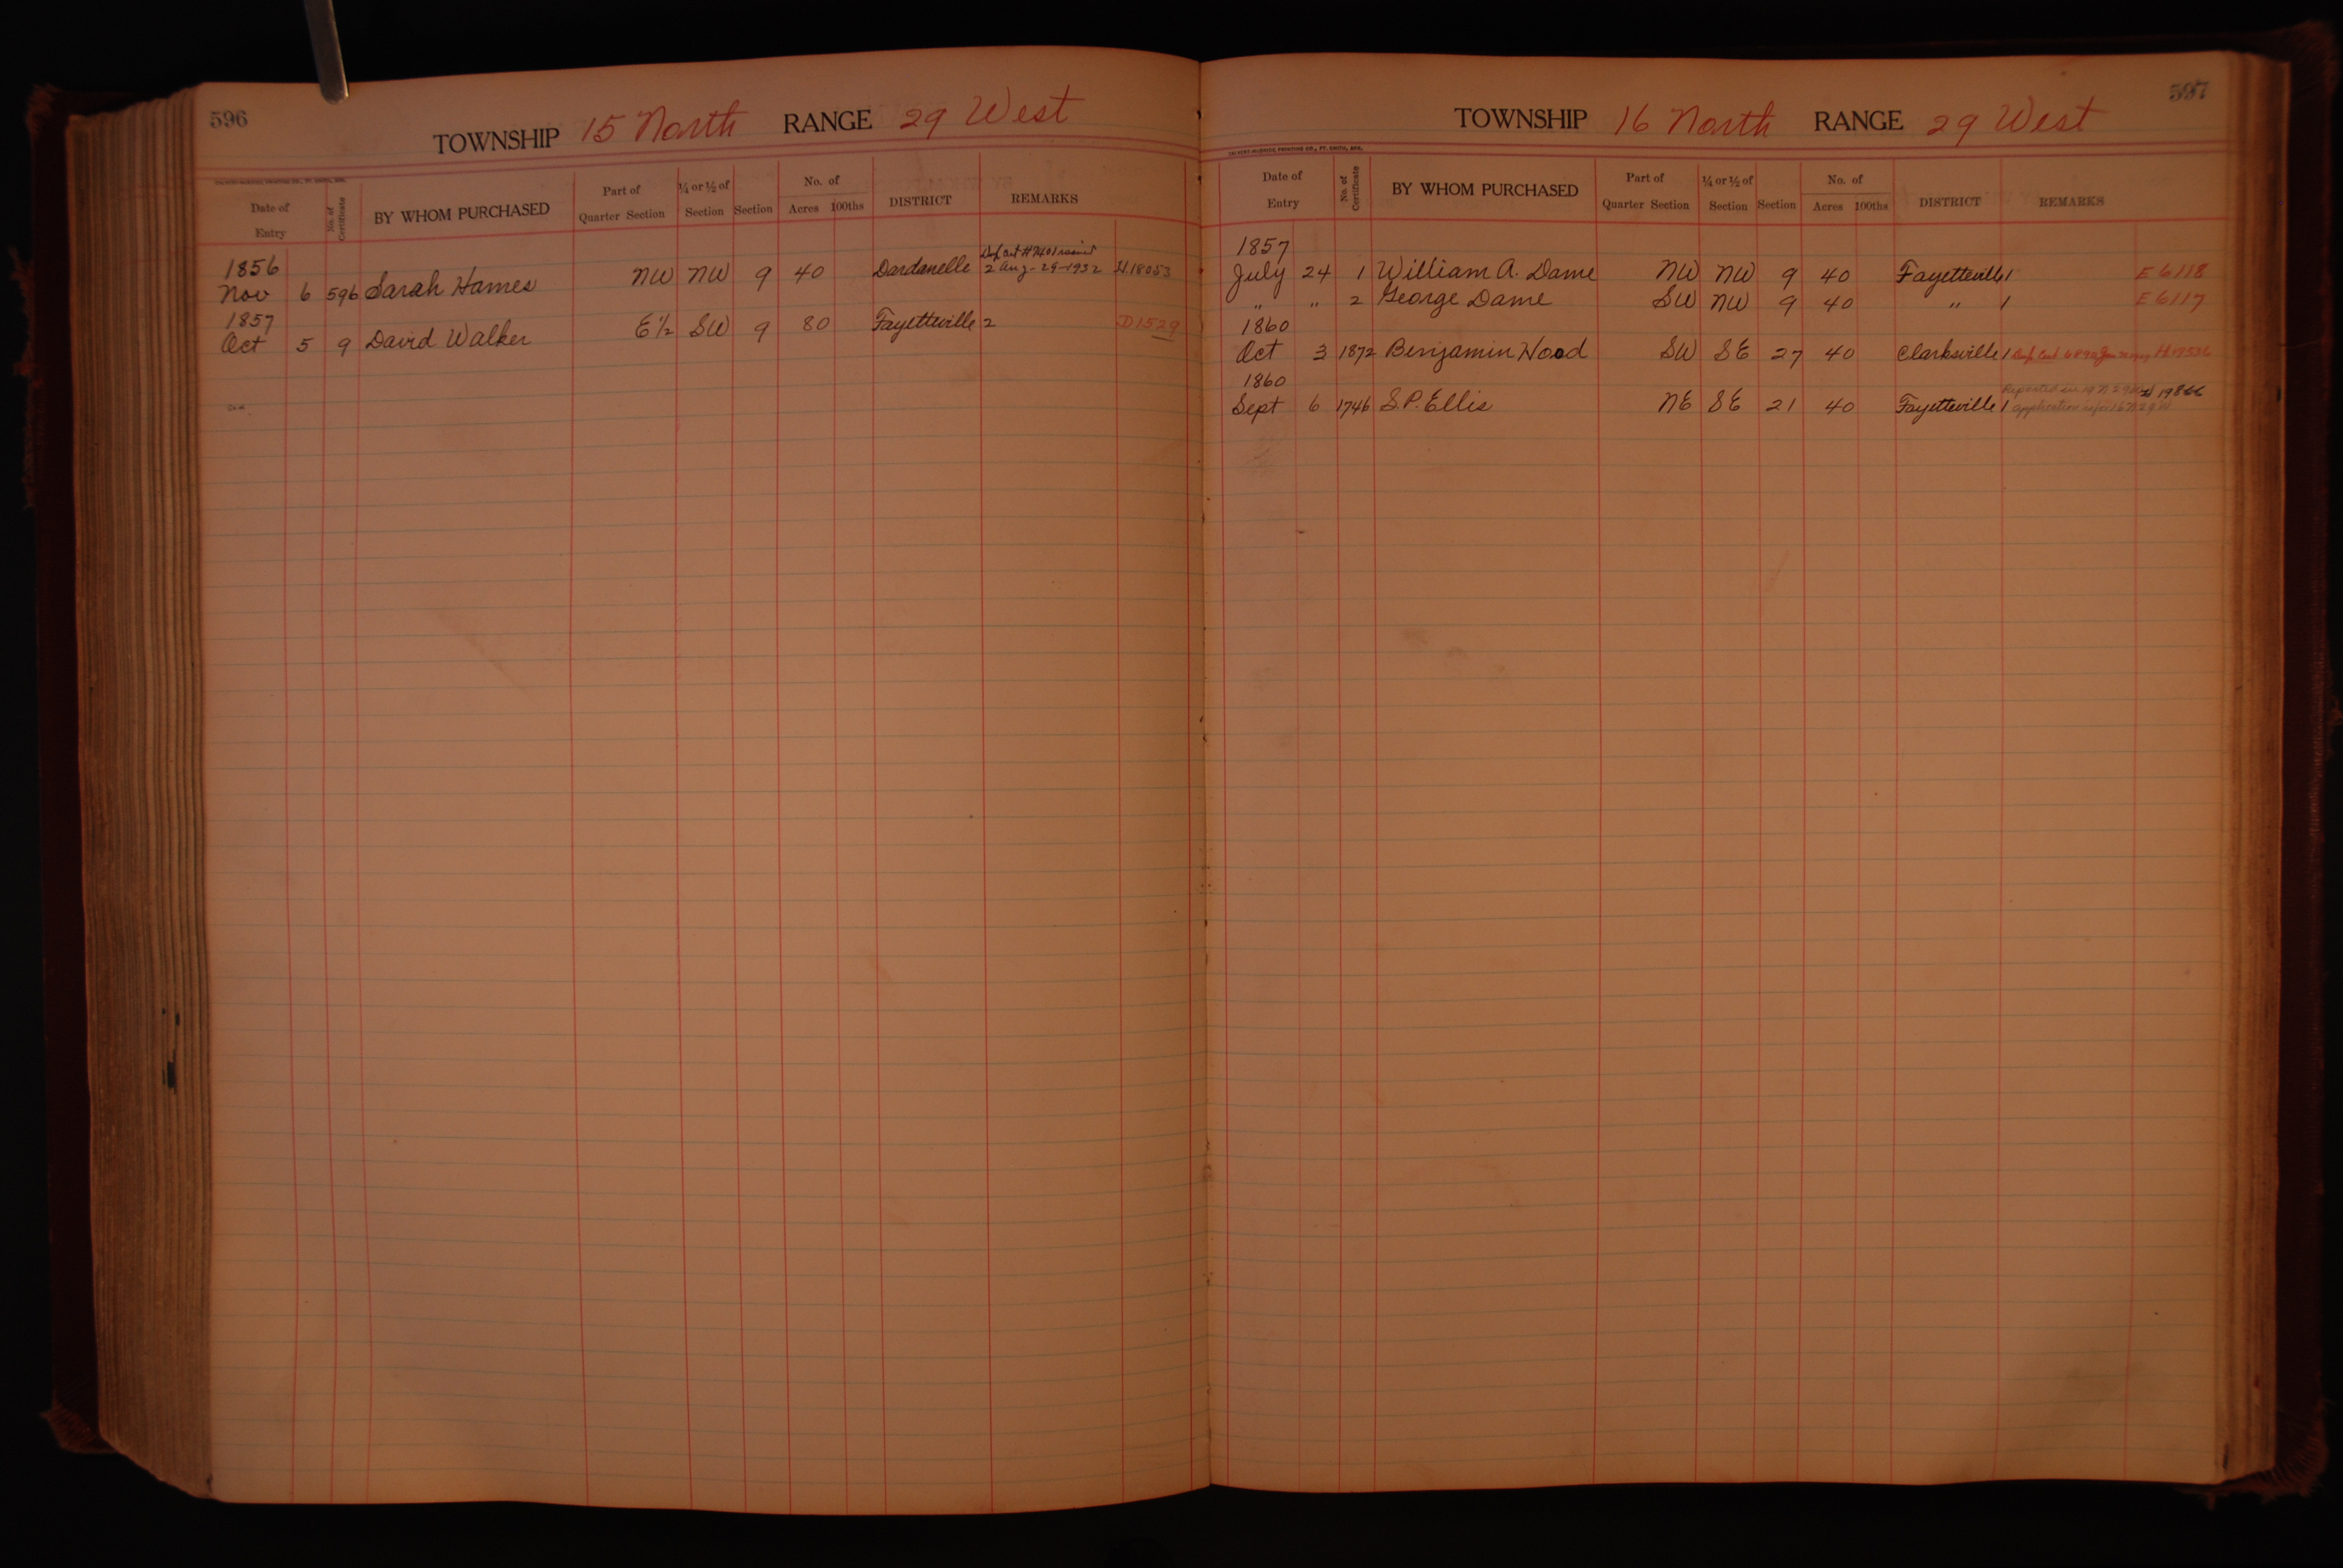 596
TOWNSHIP 15 North RANGE 29 West
Date of Entry No. of Certificate BY WHOM PURCHASED Part of Quarter Section ¼ or ½ of Section Section No. of Acres 100ths DISTRICT REMARKS
1856
Nov 6 596 Sarah Hames NW NW 9 40 Dardanelle 2 Aug-29-1932 H.18053
1857
Oct 5 9 David Walker E½ SW 9 80 Fayetteville 2 D1529
597
TOWNSHIP 16 North RANGE 29 West
CALVERT-McBRIDE PRINTING CO., FT. SMITH, ARK.
Date of Entry No. of Certificate BY WHOM PURCHASED Part of Quarter Section ¼ or ½ of Section Section No. of Acres 100ths DISTRICT REMARKS
1857
July 24 1 William A. Dame NW NW 9 40 Fayetteville 1 E 6118
" " 2 George Dame SW NW 9 40 " 1 E 6117
1860
Oct 3 1872 Benjamin Wood SW SE 27 40 Clarksville 1
1860
Reported in 19866
Sept 6 1746 S.P. Ellis NE SE 21 40 Fayetteville 1 application is for 16 N 29 W